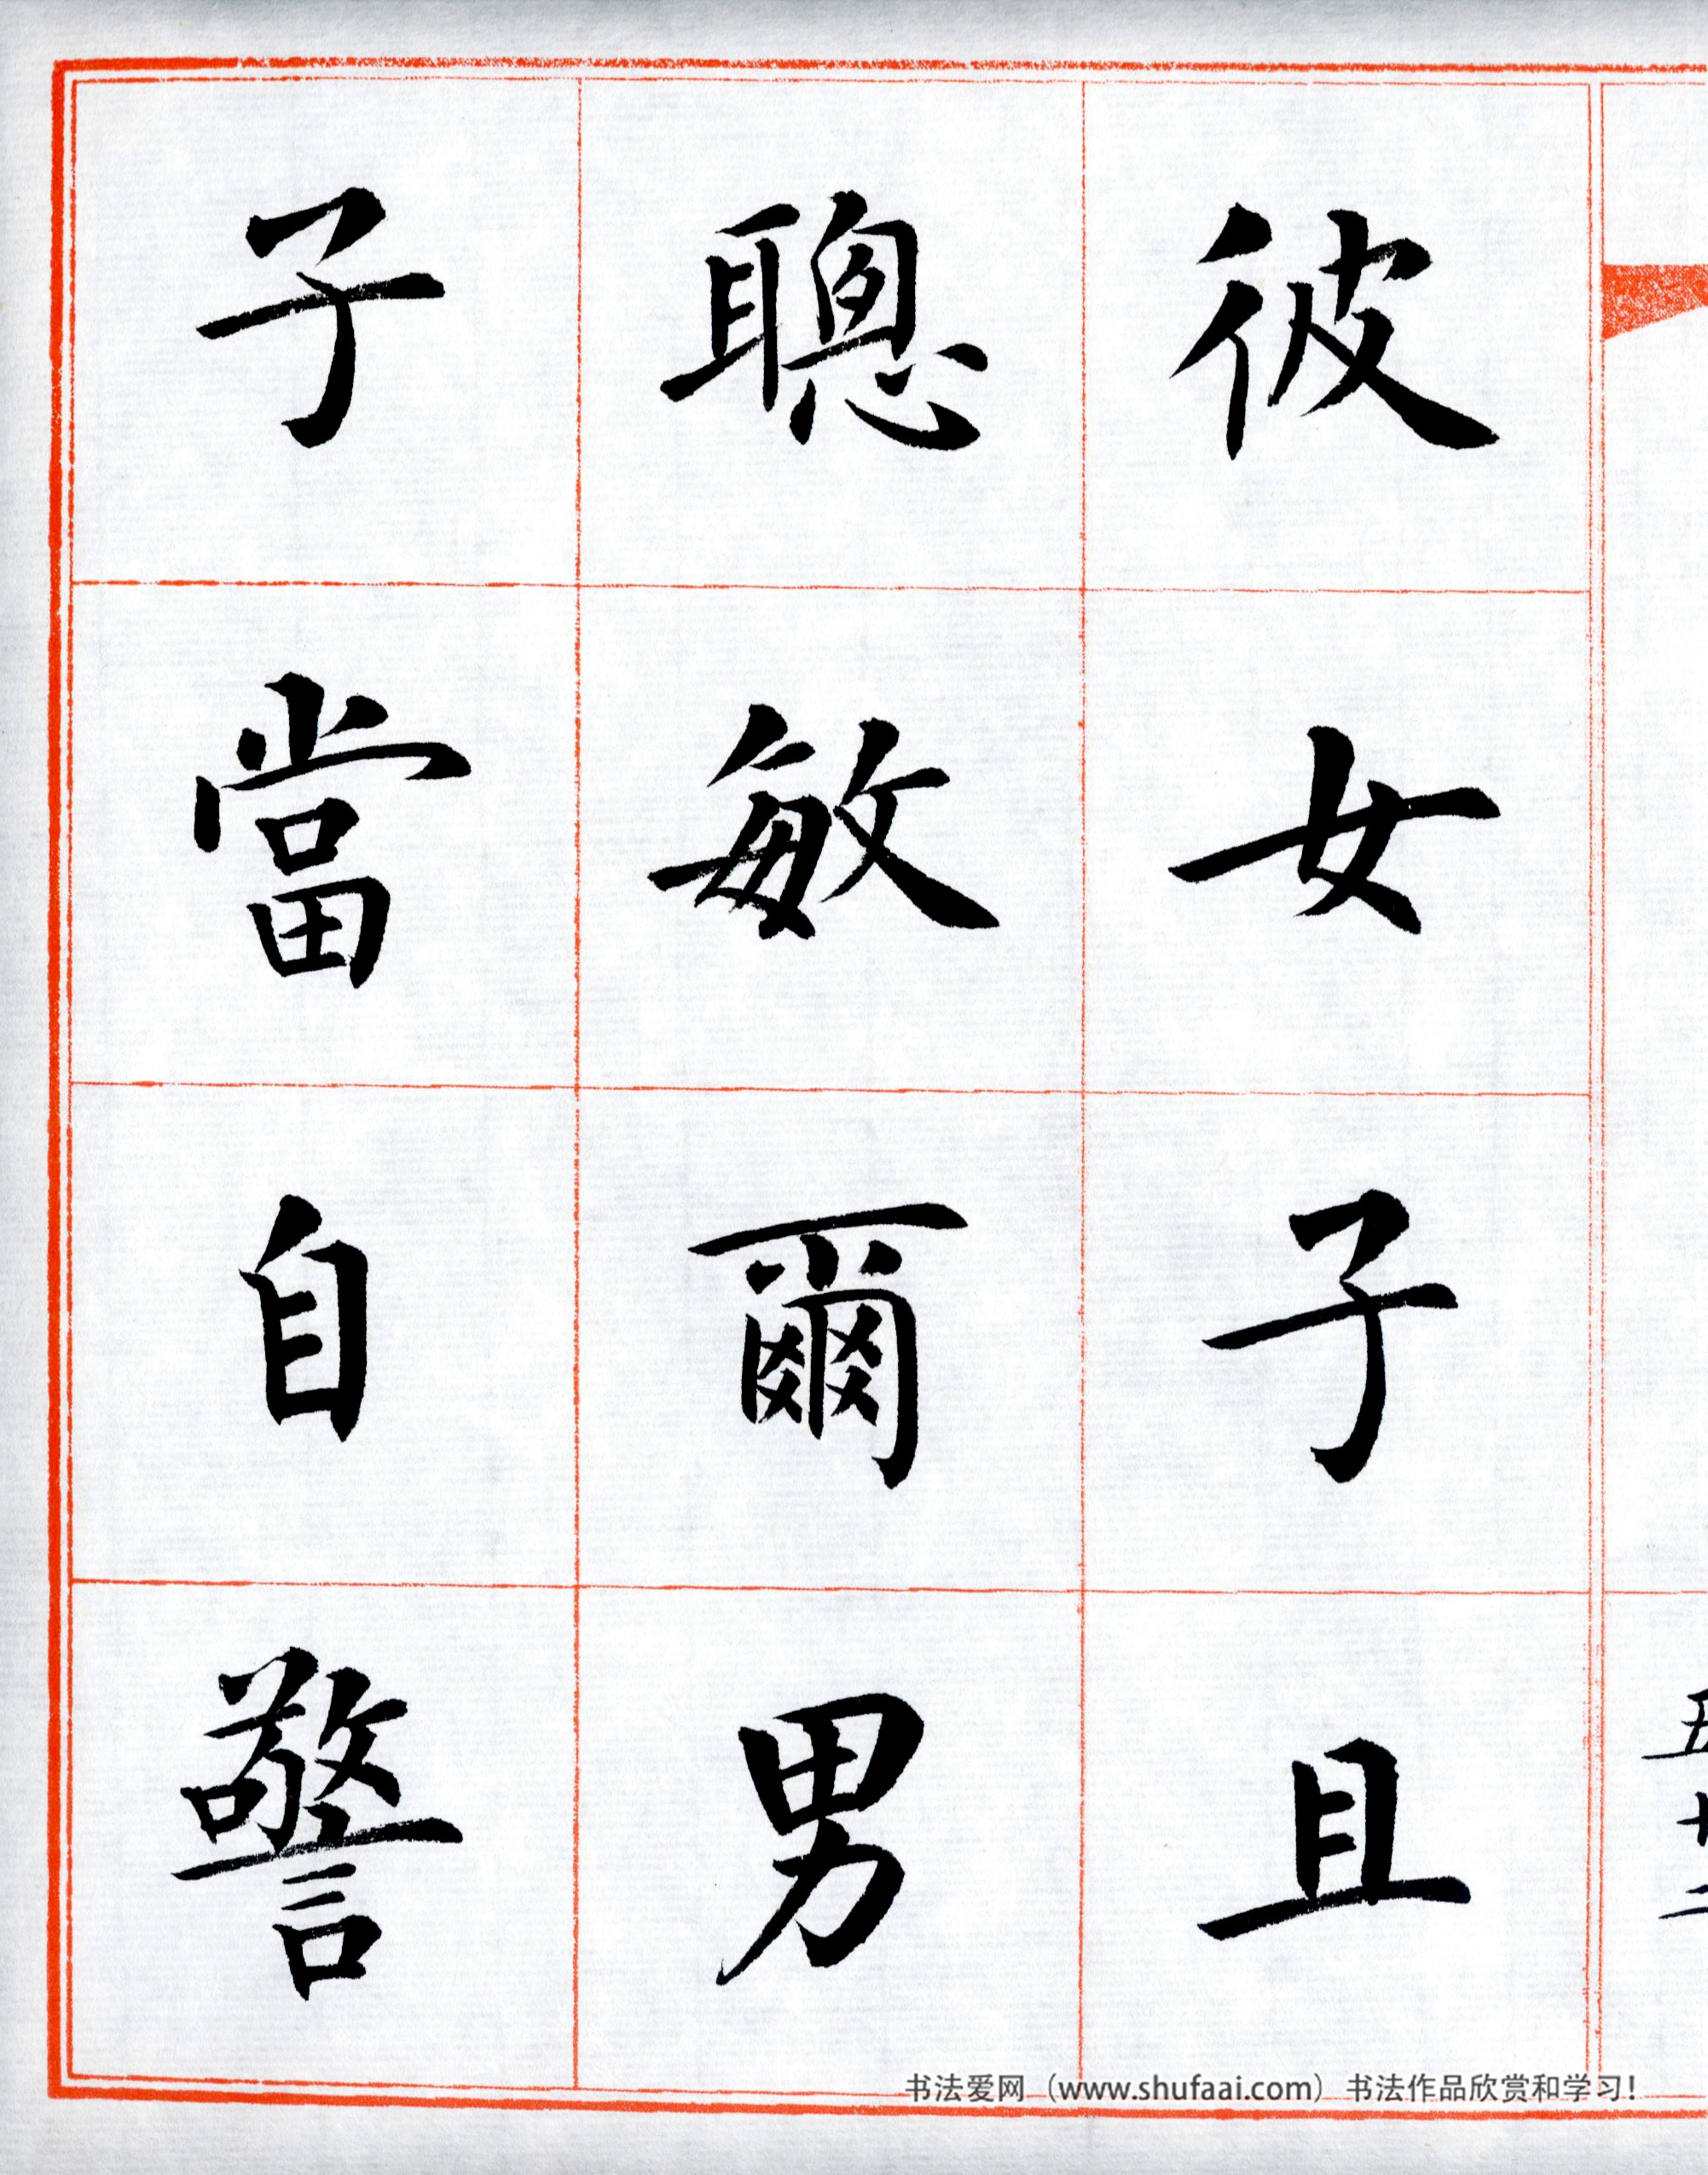 彼女子且
聰敏爾男
子當自警
五十二
书法爱网（www.shufaai.com）书法作品欣赏和学习！